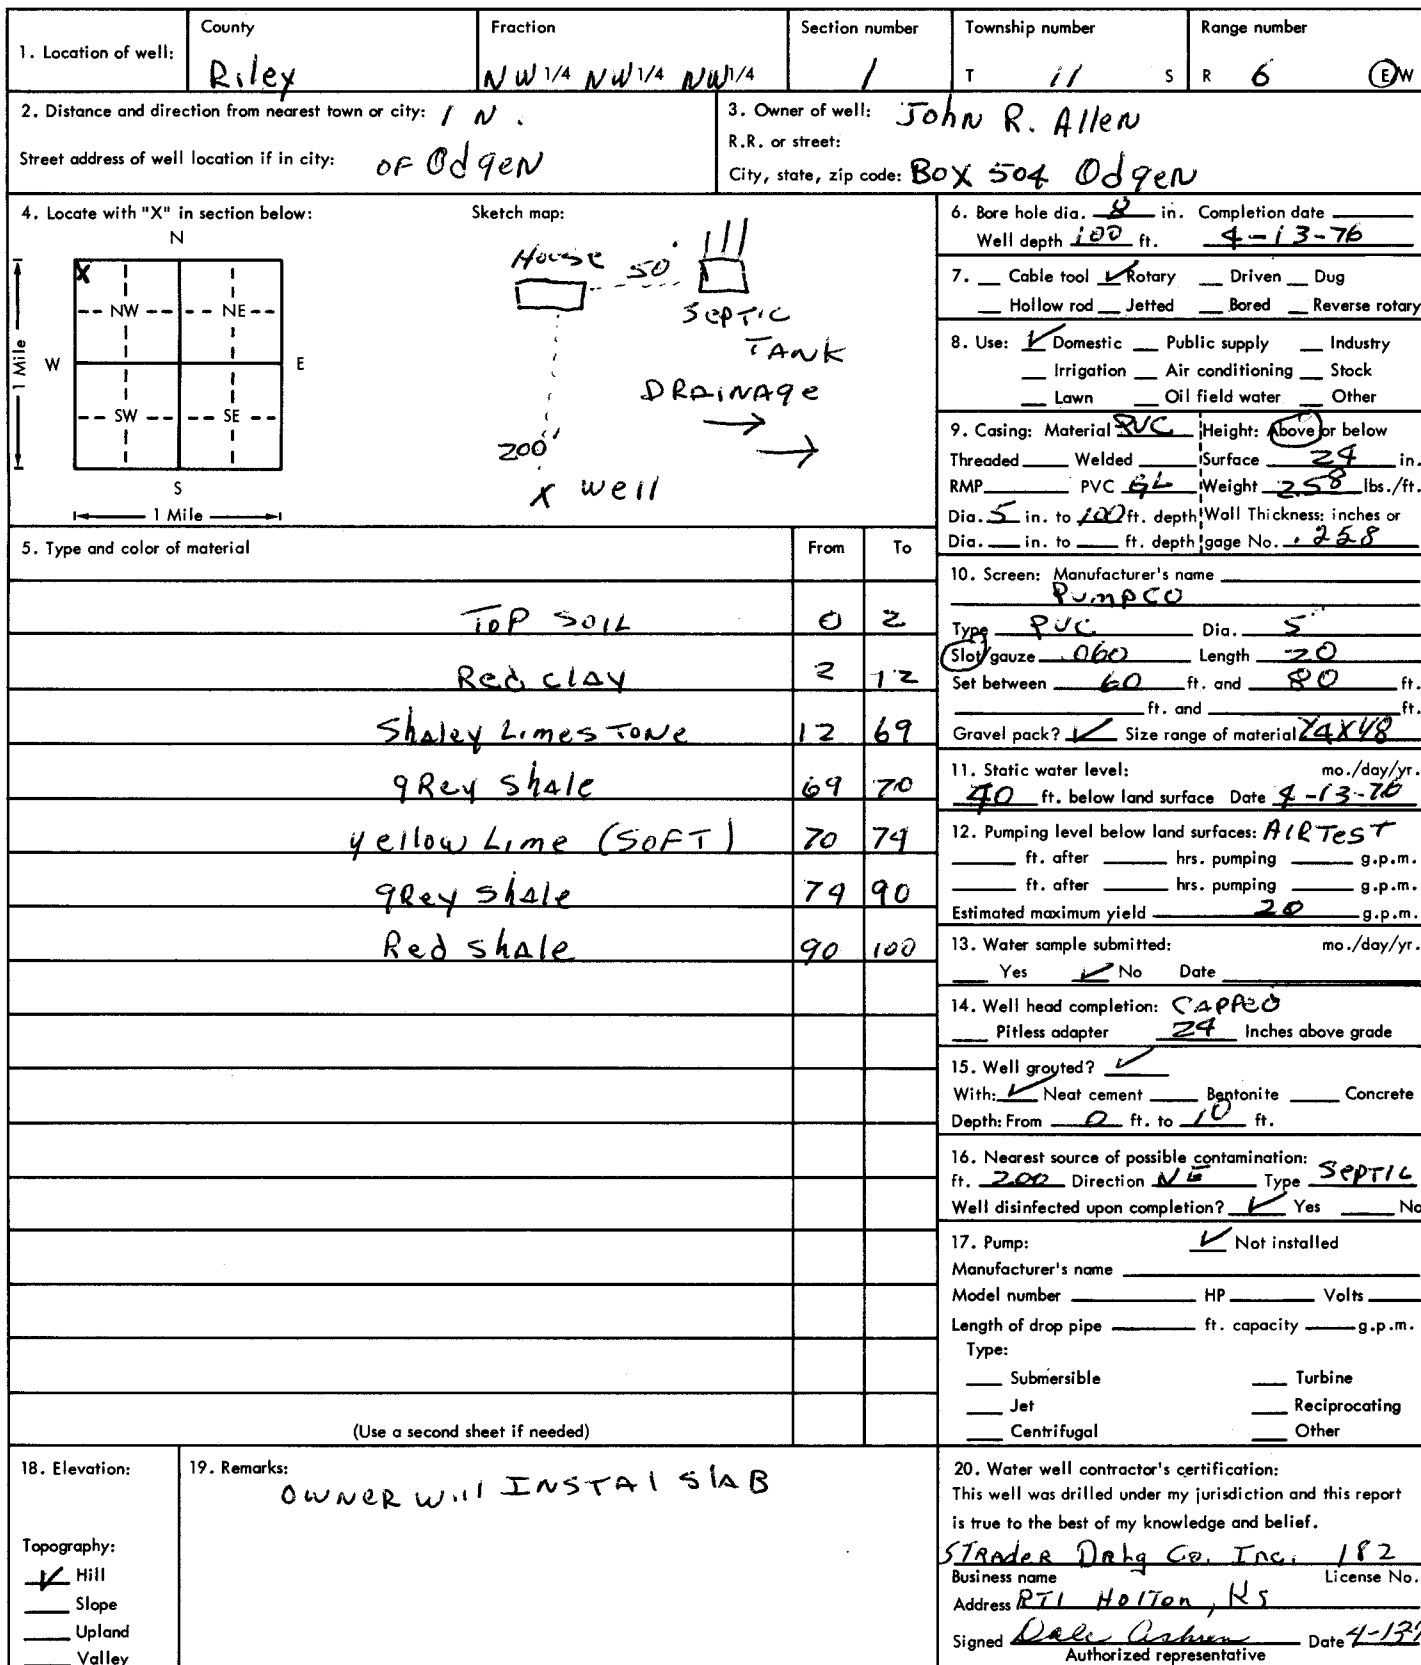 1. Location of well: County Riley Fraction NW 1/4 NW 1/4 NW 1/4 Section number 1 Township number T 11 S Range number R 6 E/W
2. Distance and direction from nearest town or city: 1 N.
Street address of well location if in city: OF Odgen
3. Owner of well: John R. Allen
R.R. or street:
City, state, zip code: Box 504 Odgen
4. Locate with "X" in section below:
N
X
NW NE
W E
SW SE
S
1 Mile
1 Mile
Sketch map:
House 50'
Septic
Tank
Drainage
200'
X Well
5. Type and color of material From To
Top Soil 0 2
Red clay 2 12
Shaley Limestone 12 69
gRey shale 69 70
yellow Lime (SOFT) 70 74
gRey shale 74 90
Red shale 90 100
(Use a second sheet if needed)
6. Bore hole dia. 8 in. Completion date
Well depth 100 ft. 4-13-76
7. Cable tool ✓ Rotary Driven Dug
Hollow rod Jetted Bored Reverse rotary
8. Use: ✓ Domestic Public supply Industry
Irrigation Air conditioning Stock
Lawn Oil field water Other
9. Casing: Material PVC Height: Above or below
Threaded Welded Surface 24 in.
RMP PVC GL Weight 258 lbs./ft.
Dia. 5 in. to 100 ft. depth Wall Thickness: inches or
Dia. in. to ft. depth gage No. .258
10. Screen: Manufacturer's name
Pumpco
Type PVC Dia. 5"
Slot/gauze .060 Length 20
Set between 60 ft. and 80 ft.
ft. and ft.
Gravel pack? ✓ Size range of material
11. Static water level: mo./day/yr.
40 ft. below land surface Date 4-13-76
12. Pumping level below land surfaces: AIR TesT
ft. after hrs. pumping g.p.m.
ft. after hrs. pumping g.p.m.
Estimated maximum yield 20 g.p.m.
13. Water sample submitted: mo./day/yr.
Yes ✓ No Date
14. Well head completion: CAPPED
Pitless adapter 24 Inches above grade
15. Well grouted? ✓
With: ✓ Neat cement Bentonite Concrete
Depth: From 0 ft. to 10 ft.
16. Nearest source of possible contamination:
ft. 200 Direction NE Type SEPTIC
Well disinfected upon completion? ✓ Yes No
17. Pump: ✓ Not installed
Manufacturer's name
Model number HP Volts
Length of drop pipe ft. capacity g.p.m.
Type:
Submersible Turbine
Jet Reciprocating
Centrifugal Other
18. Elevation:
Topography:
✓ Hill
Slope
Upland
Valley
19. Remarks:
OWNER Will INSTAl SlAB
20. Water well contractor's certification:
This well was drilled under my jurisdiction and this report
is true to the best of my knowledge and belief.
STRADER Drlg Co. Inc. 182
Business name License No.
Address RT1 Holton, KS
Signed Dale Date 4-13-7
Authorized representative